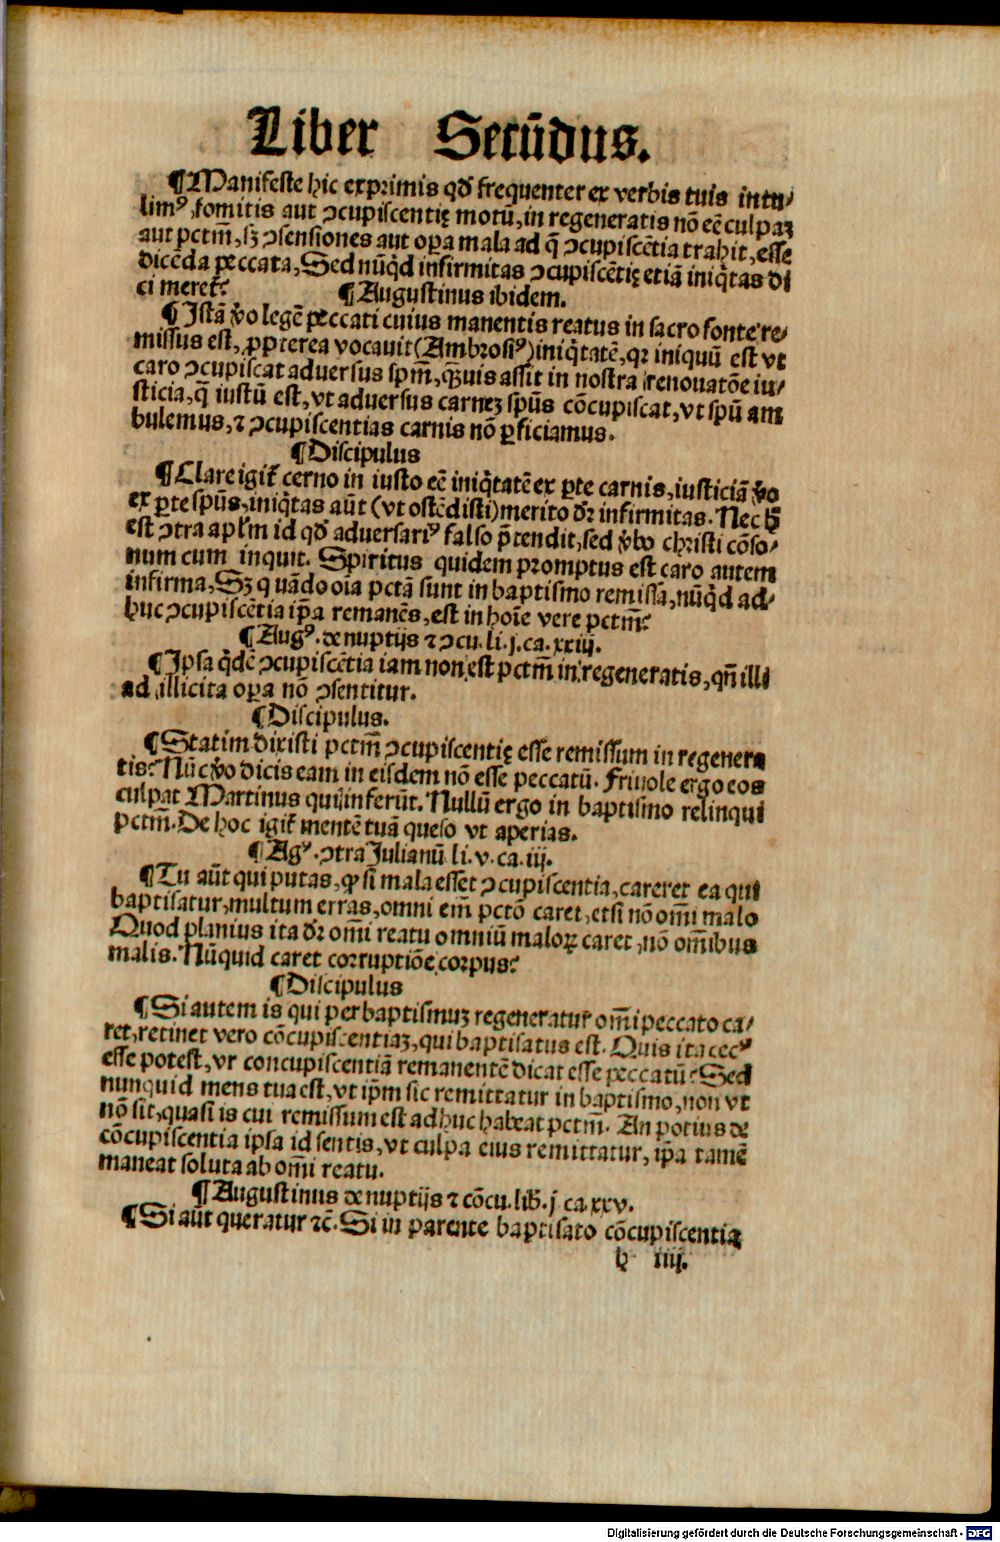 Liber Secūdus.
¶Manifeste hic exprimis qđ frequenter ex verbis tuis intu⸗
limꝰ,fomitis aut ↄcupiscentię motū,in regeneratis nō eē culpaꝫ
aut pctm̄,sꝫ ↄsensiones aut oꝑa mala ad q̄ ↄcupiscētia trahit,esse
dicēda peccata,Sed nūqd infirmitas ↄcupiscētię etiā iniqtas di
ci meret᷑?
¶Augustinus ibidem.
¶Istā ꝟo legē peccati cuius manentis reatus in sacro fonte re⸗
missus est,ꝓpterea vocauit(Ambrosiꝰ)iniqtatē,qꝛ iniquū est vt
caro ↄcupiscat aduersus spm̄,qꝫuis assit in nostra renouatōe iu⸗
sticia,q̄ iustū est,vt aduersus carneꝫ spūs cōcupiscat,vt spū am
bulemus,⁊ ↄcupiscentias carnis nō ꝑficiamus.
¶Discipulus
¶Clare igit᷑ cerno in iusto eē iniqtatē ex ꝑte carnis,iusticiā ꝟo
ex ꝑte spūs,iniqtas aūt (vt ostēdisti)merito dꝛ infirmitas.Nec h̄
est ↄtra aplm̄ id qđ aduersariꝰ falso p̄tendit,sed ꝟbo christi cōso⸗
num cum inquit. Spiritus quidem promptus est caro autem
infirma,Sꝫ quādo oīa pctā sunt in baptismo remissa,nūqd ad⸗
huc ↄcupiscētia ip̄a remanēs,est in hoīe vere pctm̄?
¶Augꝰ.de nuptijs ⁊ ↄcu.li.j.ca.xxiij.
¶Ipsa qdē ↄcupiscētia iam non est pctm̄ in regeneratis,qn̄ illi
ad illicita oꝑa nō ↄsentitur.
¶Discipulus.
¶Statim dixisti pctm̄ ↄcupiscentię esse remissum in regenera
tis?Nūc ꝟo dicis eam in eisdem nō esse peccatū. Friuole ergo eos
culpat Martinus qui inferūt. Nullū ergo in baptismo relinqui
pctm̄.De hoc igit᷑ mentē tuā queso vt aperias.
¶Agꝰ.ↄtra Julianū li.v.ca.iij.
¶Tu aūt qui putas,ꝙ si mala esset ↄcupiscentia,careret ea qui
baptisatur,multum erras,omni em̄ pctō caret,etsi nō om̄i malo
Quod planius ita dꝛ om̄i reatu omniū maloꝝ caret,nō om̄ibus
malis.Nūquid caret corruptiōe corpus?
¶Discipulus
¶Si autem is qui per baptismuꝫ regeneratur om̄i peccato ca⸗
ret,retinet vero cōcupiscentiaꝫ,qui baptisatus est. Quis ita cecꝰ
esse potest,vt concupiscentiā remanentē dicat esse peccatū?Sed
nunquid mens tua est,vt ip̄m sic remittatur in baptismo,non vt
nō sit,quasi is cui remissum est adhuc habeat pctm̄. An potius de
cōcupiscentia ipsa id sentis,vt culpa eius remittatur,ip̄a tamē
maneat soluta ab om̄i reatu.
¶Augustinus de nuptijs ⁊ cōcu.lib̄.j ca.xxv.
¶Si aūt queratur ⁊c̄.Si in parente baptisato cōcupiscentia
h iiij.
Digitalisierung gefördert durch die Deutsche Forschungsgemeinschaft - DFG